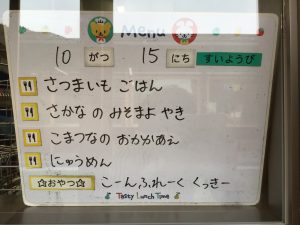 Menu
10 がつ 15 にち すいようび
さつまいも ごはん
さかな の みそまよ やき
こまつなの おかかあえ
にゅうめん
☆おやつ☆ こーんふれーく くっきー
Tasty Lunch Time